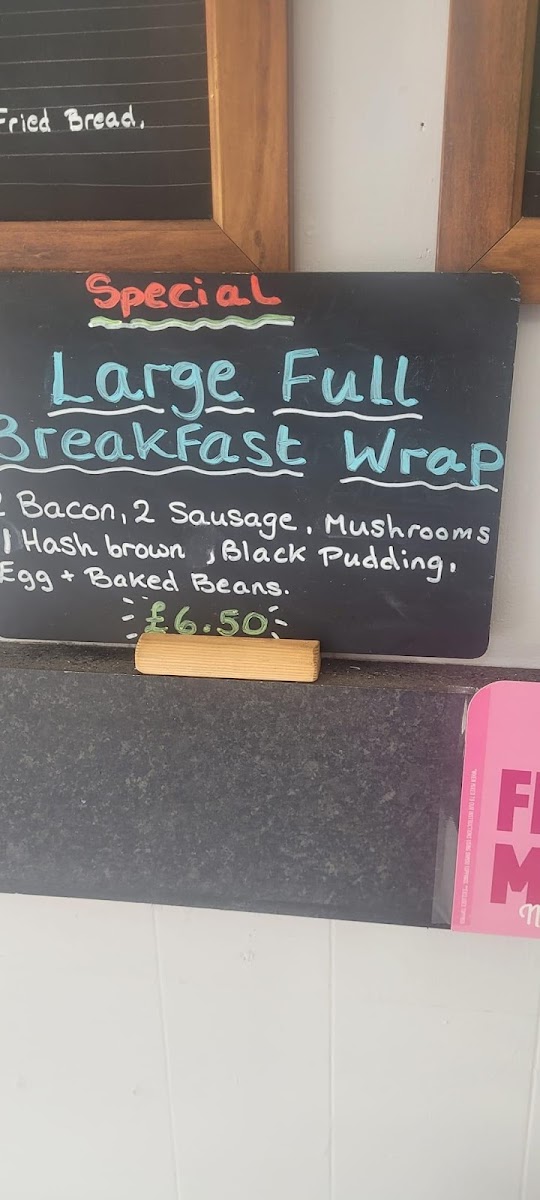 Fried Bread.
Special
Large Full
Breakfast Wrap
2 Bacon, 2 Sausage, Mushrooms
1 Hash brown, Black Pudding,
Egg + Baked Beans.
£6.50